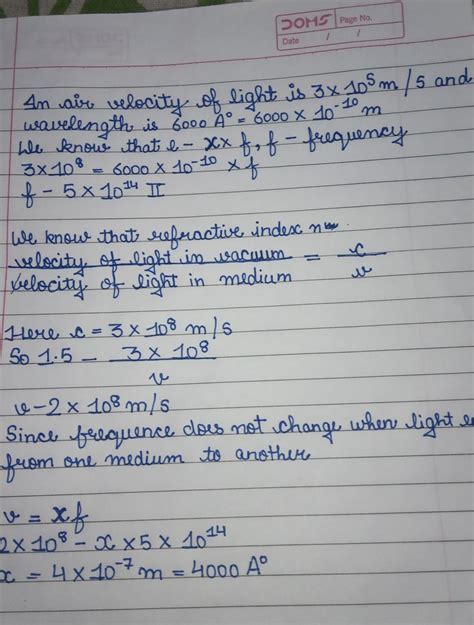 DOMS
Page No.
Date / /
In air velocity of light is 3 x 10⁵ m / s and
wavelength is 6000 A° = 6000 x 10⁻¹⁰ m
We know that c - x x f, f - frequency
3 x 10⁸ = 6000 x 10⁻¹⁰ x f
f - 5 x 10¹⁴ II
We know that refractive index n
velocity of light in vacuum = c
velocity of light in medium v
Here c = 3 x 10⁸ m/s
So 1.5 - 3 x 10⁸
v
v - 2 x 10⁸ m/s
Since frequence does not change when light
from one medium to another
v = xf
2 x 10⁸ - x x 5 x 10¹⁴
x = 4 x 10⁻⁷ m = 4000 A°